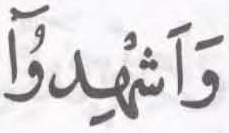 وَاَشْهِدُوْۤا